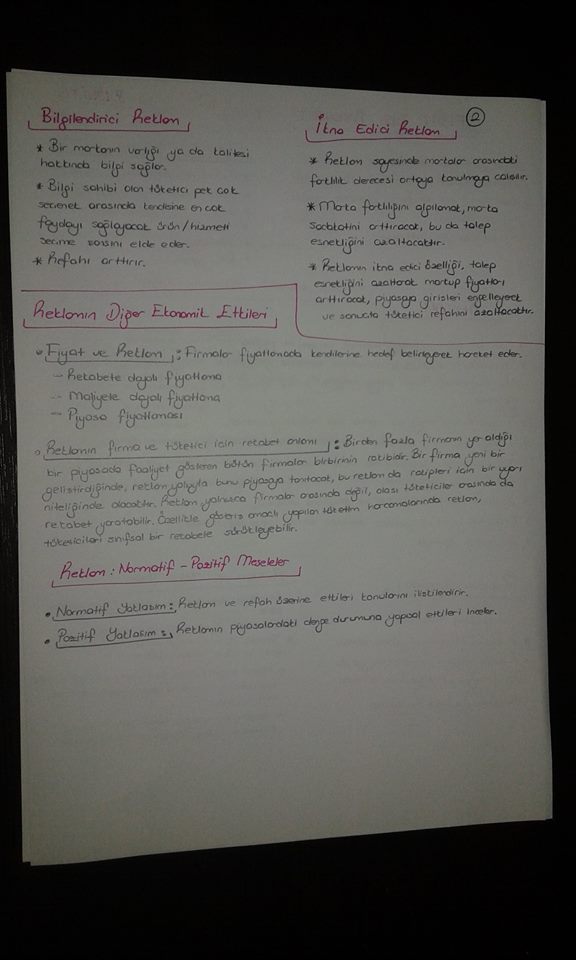 ②
Bilgilendirici Reklam
* Bir markanın varlığı ya da kalitesi
hakkında bilgi sağlar.
* Bilgi sahibi olan tüketici pek çok
seçenek arasında kendisine en çok
faydayı sağlayacak ürün/hizmeti
seçme şansını elde eder.
* Refahı arttırır.
İkna Edici Reklam
* Reklam sayesinde markalar arasındaki
farklılık derecesi ortaya konulmaya çalışılır.
* Marka farklılığını algılamak, marka
sadakatini arttıracak, bu da talep
esnekliğini azaltacaktır.
* Reklamın ikna edici özelliği, talep
esnekliğini azaltarak markup fiyatları
arttıracak, piyasaya girişleri engelleyerek
ve sonuçta tüketici refahını azaltacaktır.
Reklamın Diğer Ekonomik Etkileri
• Fiyat ve Reklam : Firmalar fiyatlamada kendilerine hedef belirleyerek hareket eder.
- Rekabete dayalı fiyatlama
- Maliyete dayalı fiyatlama
- Piyasa fiyatlaması
• Reklamın firma ve tüketici için rekabet anlamı : Birden fazla firmanın yer aldığı
bir piyasada faaliyet gösteren bütün firmalar birbirinin rakibidir. Bir firma yeni bir
geliştirdiğinde, reklam yoluyla bunu piyasaya tanıtacak, bu reklam da rakipleri için bir uyarı
niteliğinde olacaktır. Reklam yalnızca firmalar arasında değil, olası tüketiciler arasında da
rekabet yaratabilir. Özellikle gösteriş amaçlı yapılan tüketim harcamalarında reklam,
tüketicileri sınıfsal bir rekabete sürükleyebilir.
Reklam : Normatif - Pozitif Meseleler
• Normatif Yaklaşım : Reklam ve refah üzerine etkileri konularını ilişkilendirir.
• Pozitif Yaklaşım : Reklamın piyasalardaki denge durumuna yapısal etkileri inceler.